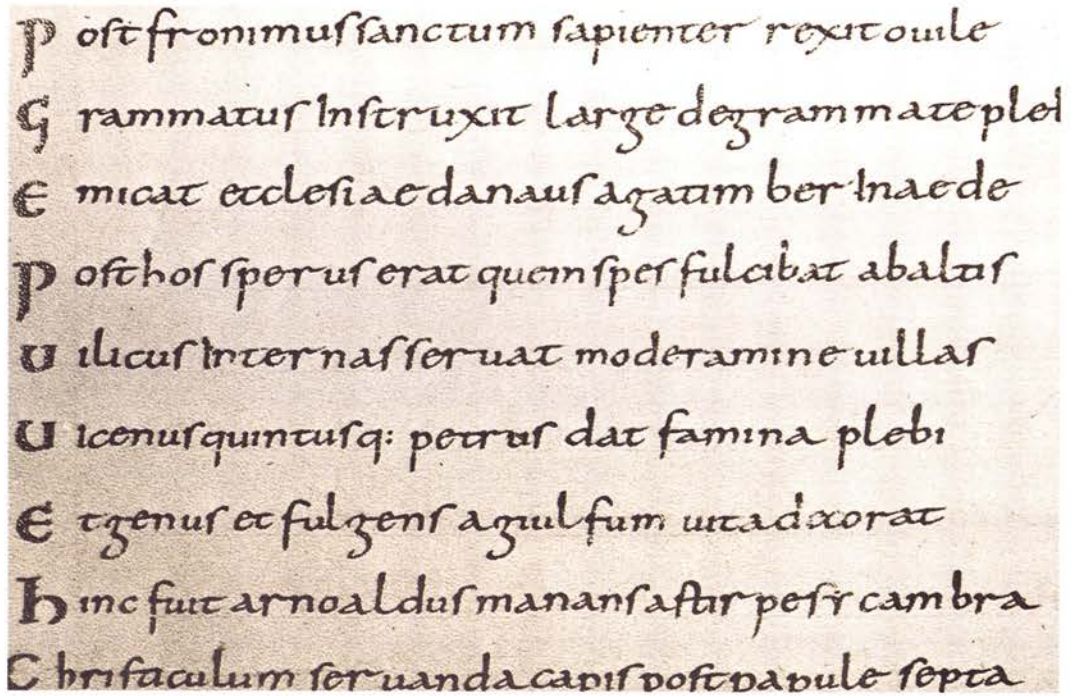 Post fronimus sanctum sapienter rexit ouile
Grammatus Instruxit large degrammate pleb
Emicat ecclesiae danaus agatim ber Inaede
Post hos sperus erat quem spes fulcibat abaltis
Uilicus Internas seruat moderamine uillas
Uicenus quintusq: petrus dat famina plebi
Et genus et fulgens agiulfum uita decorat
Hinc fuit arnoaldus manans astirpe sicambra
Chri staculum seruanda capis post papule septa